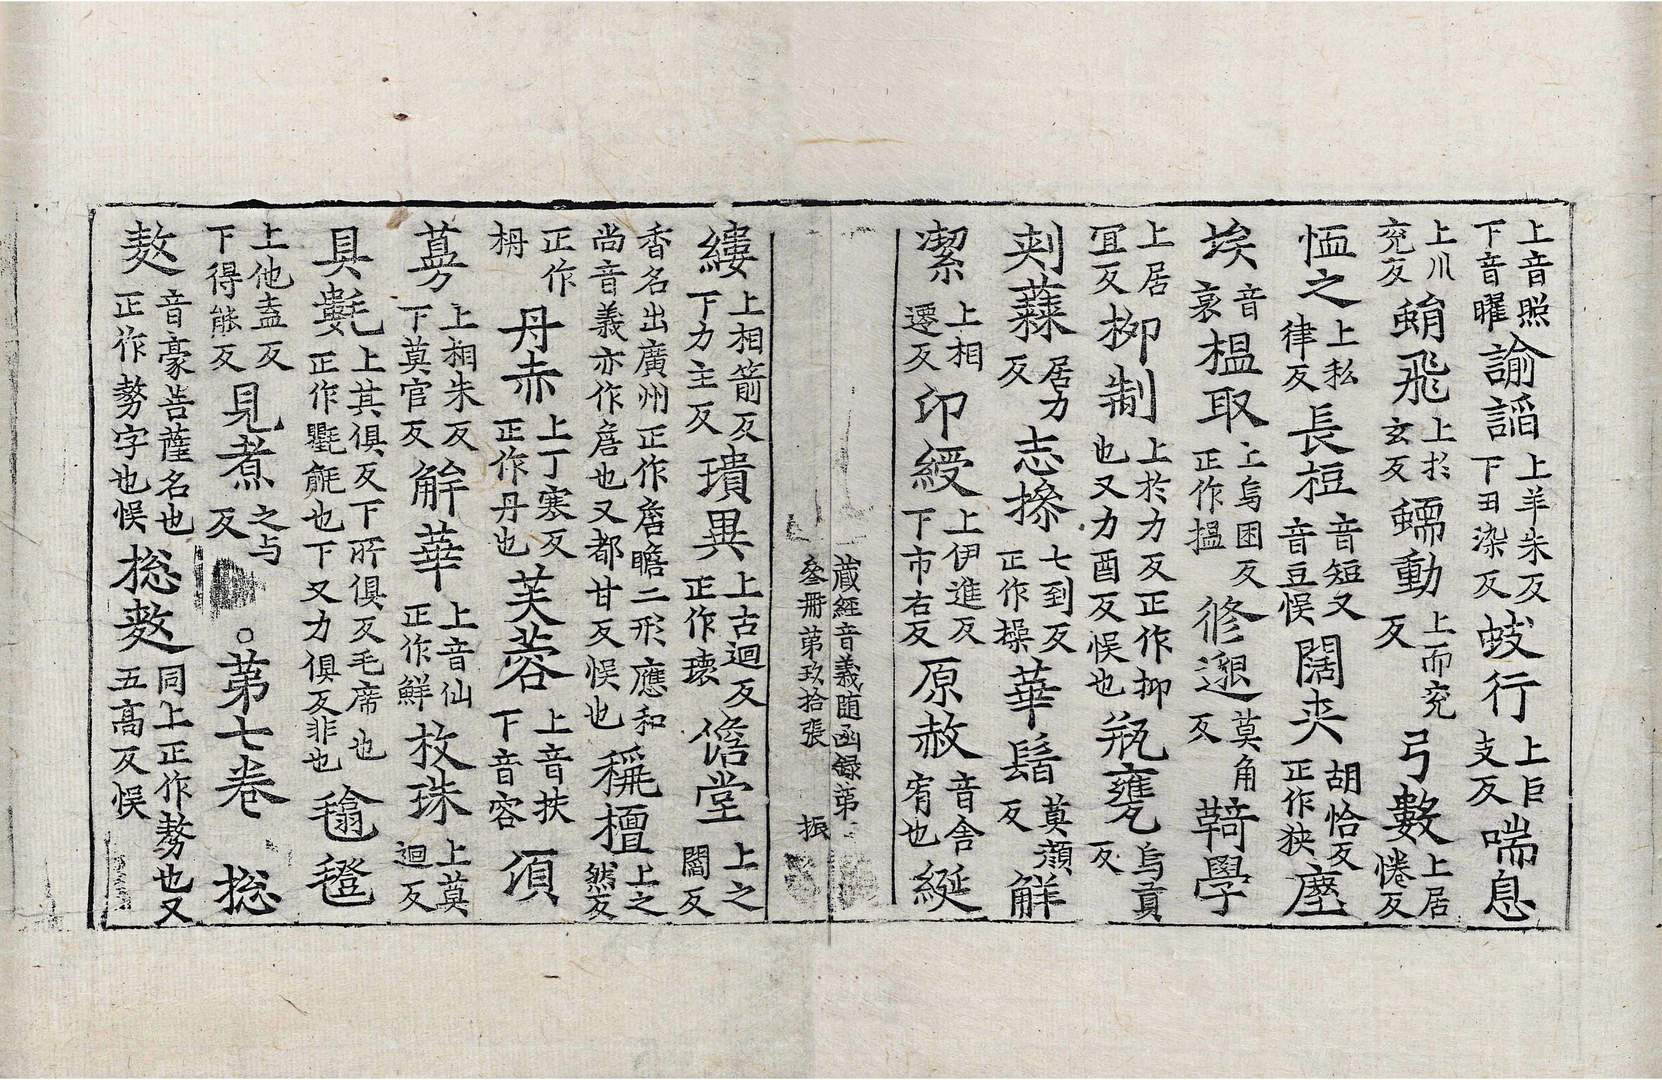 上音照下音曜諭謟上羊朱反下丑染反蚑行上巨支反喘息
上川兖反蜎飛上於玄反蠕動上而兖反弓數上居惓反
恤之上私律反長梪音短又音豆悞闊夾胡恰反正作狹塵
埃音哀榲取上烏困反正作揾修邈莫角反鞛學
上居冝反抑制上於力反正作抑也又力酉反悞也瓶甕烏貢反
𠛬蕀居力反志摻七到反正作操華鬘莫顔反鮮
潔上相遷反印綬上伊進反下市右反原赦音舍宥也綖
藏經音義随函録第
叄冊第玖拾張 振
縷上相箭反下力主反璝異上古迴反正作瓌儋堂上之閻反
香名出廣州正作詹瞻二形應和尚音義亦作詹也又都甘反悞也㮇檀上之然反
正作栴丹赤上丁寒反正作丹也芙蓉上扶音下音容須
蔓上相朱反下莫官反觧華上音仙正作鮮枚珠上莫迴反
具㲣上其俱反下所俱反毛席也正作氍毹也下又力俱反非也毾㲪
上他盍反下得能反見煮之与反○第七卷 捴
𢾍音豪菩薩名也正作㔢字也悞捴𢾍同上正作㔢也又五高反悞